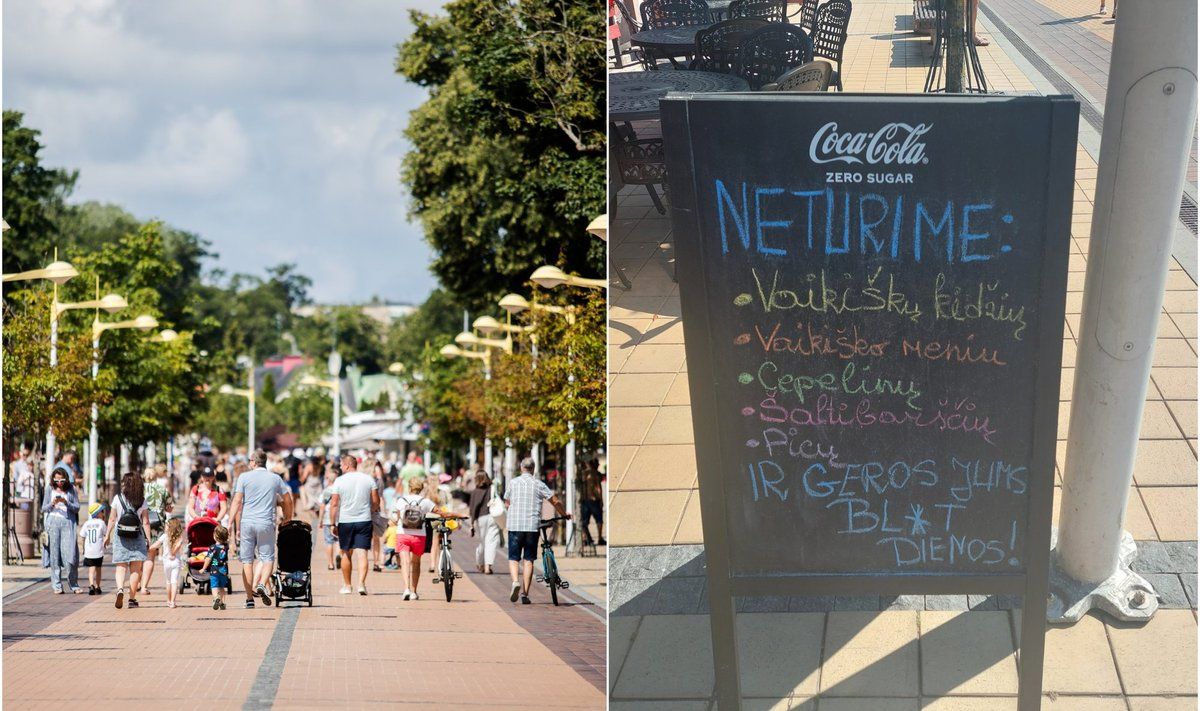 10
Coca-Cola
ZERO SUGAR
NETURIME:
• Vaikiškų kėdžių
• Vaikiško meniu
• Cepelinų
• Šaltibarščių
• Picų
IR GEROS JUMS
BL*T
DIENOS!